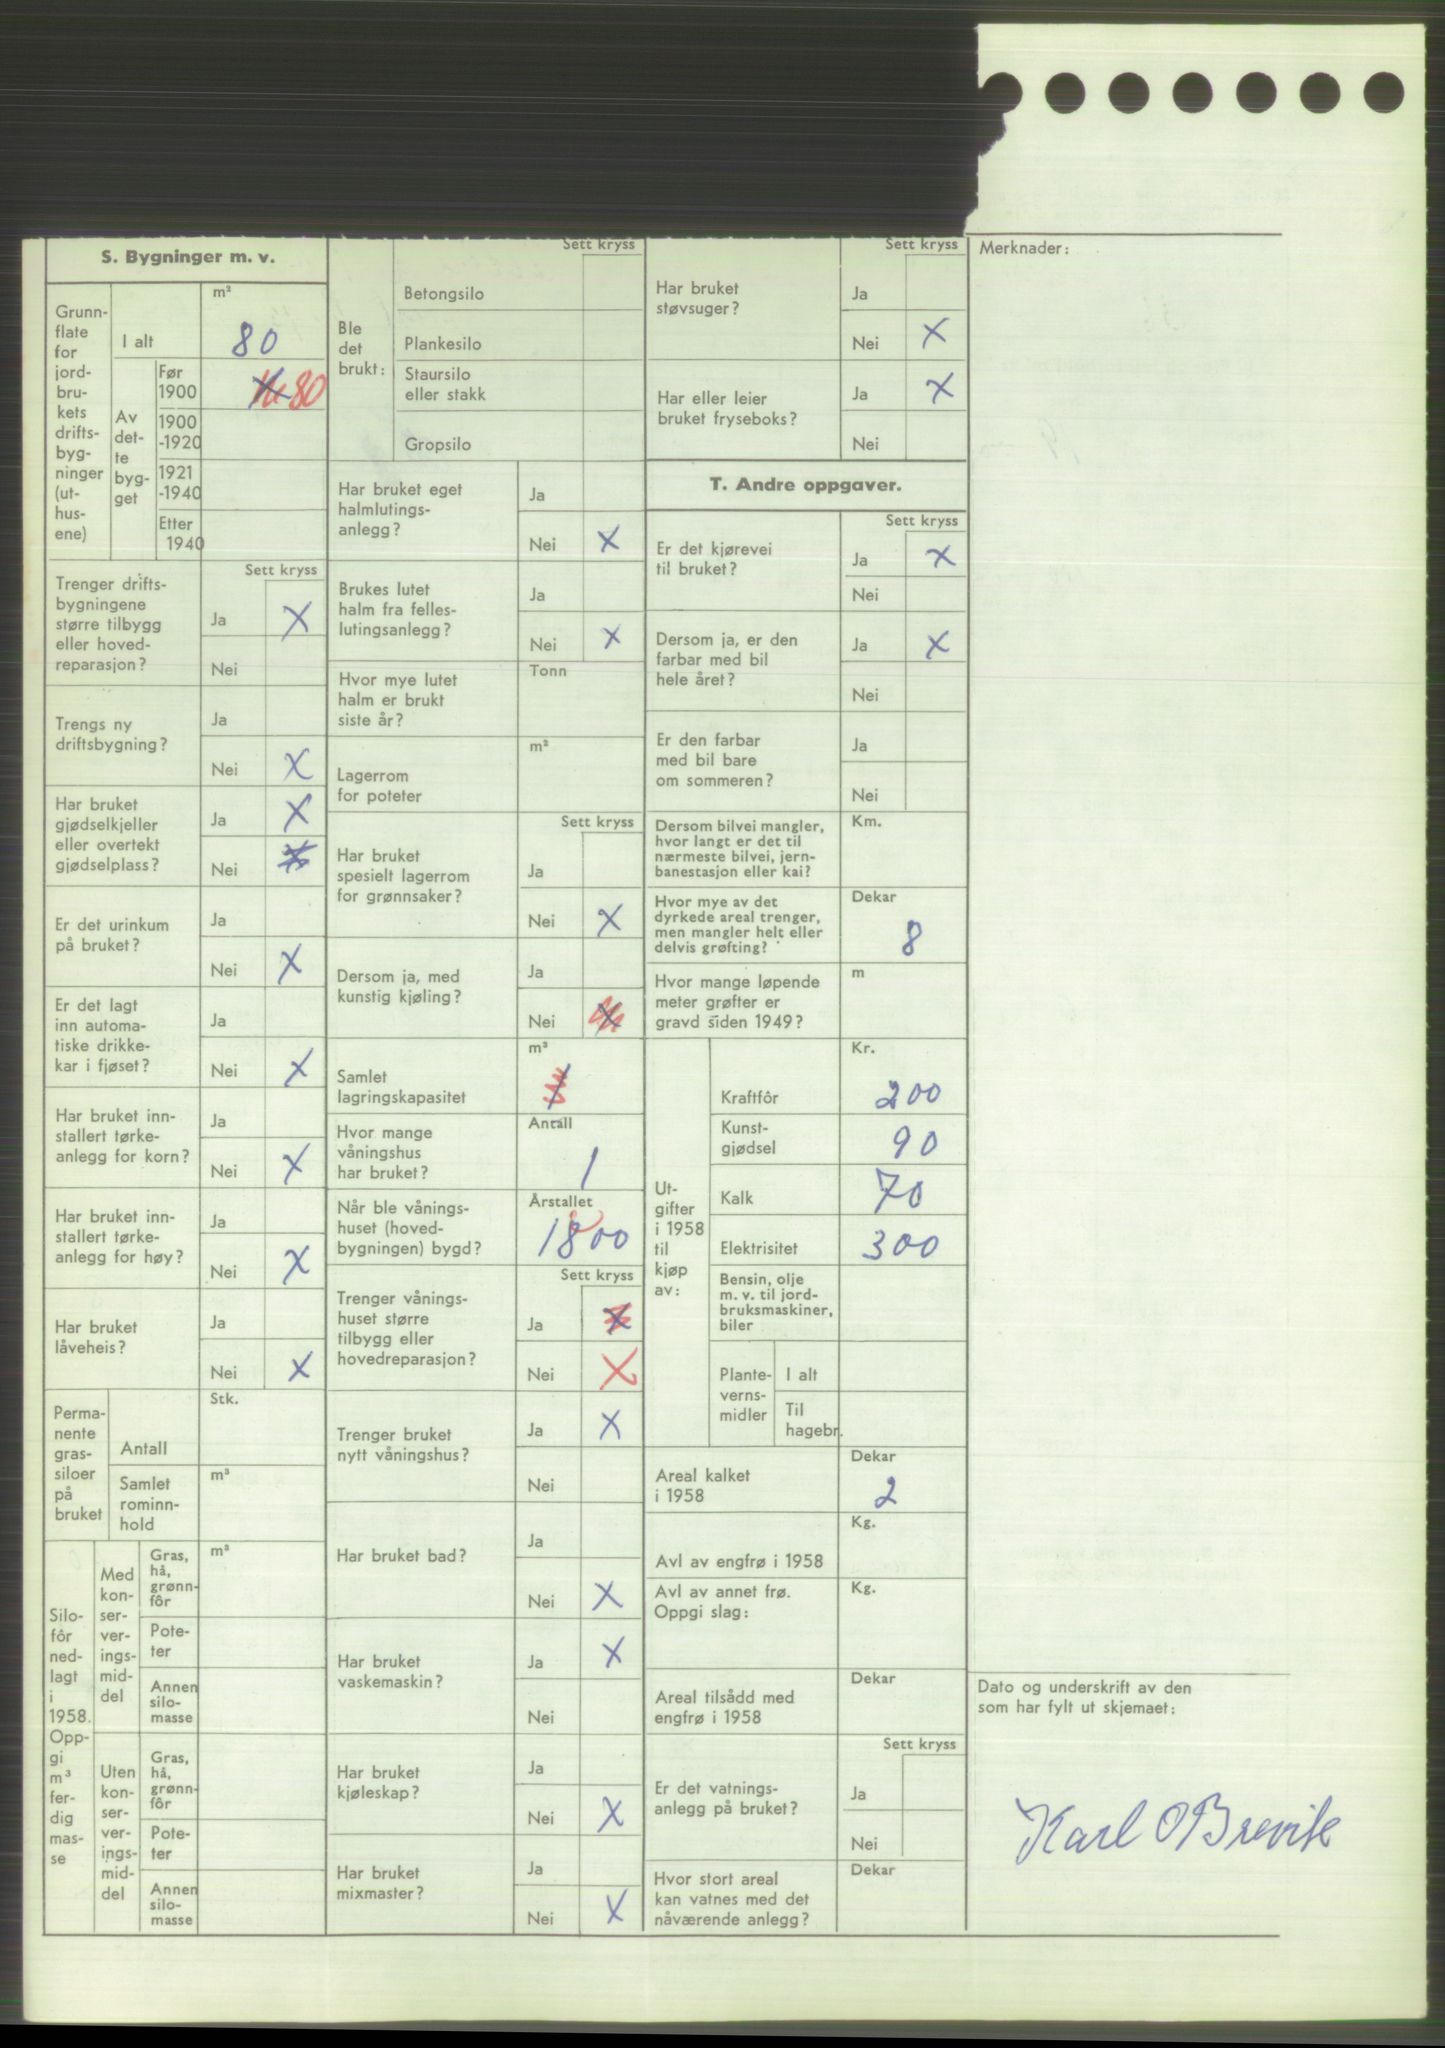 S. Bygninger m. v.
Grunn-
flate
for
jord-
bru-
kets
drifts-
byg-
ninger
(ut-
hus-
ene)
m²
I alt
80
Av
det-
te
byg-
get
Før
1900
80
1900
-1920
1921
-1940
Etter
1940
Sett kryss
Trenger drifts-
bygningene
større tilbygg
eller hoved-
reparasjon?
Ja X
Nei
Trengs ny
driftsbygning?
Ja
Nei X
Har bruket
gjødselkjeller
eller overtekt
gjødselplass?
Ja X
Nei X
Er det urinkum
på bruket?
Ja
Nei X
Er det lagt
inn automa-
tiske drikke-
kar i fjøset?
Ja
Nei X
Har bruket inn-
stallert tørke-
anlegg for korn?
Ja
Nei X
Har bruket inn-
stallert tørke-
anlegg for høy?
Ja
Nei X
Har bruket
låveheis?
Ja
Nei X
Perma-
nente
gras-
siloer
på
bruket
Stk.
Antall
m³
Samlet
rominn-
hold
Silo-
fôr
ned-
lagt
i
1958.
Opp-
gi
m³
fer-
dig
mas-
se
Med
kon-
ser-
ver-
ings-
mid-
del
m³
Gras,
hå,
grønn-
fôr
Pote-
ter
Annen
silo-
masse
Uten
kon-
ser-
ver-
ings-
mid-
del
Gras,
hå,
grønn-
fôr
Pote-
ter
Annen
silo-
masse
Sett kryss
Ble
det
brukt:
Betongsilo
Plankesilo
Staursilo
eller stakk
Gropsilo
Har bruket eget
halmlutings-
anlegg?
Ja
Nei X
Brukes lutet
halm fra felles-
lutingsanlegg?
Ja
Nei X
Hvor mye lutet
halm er brukt
siste år?
Tonn
Lagerrom
for poteter
m²
Sett kryss
Har bruket
spesielt lagerrom
for grønnsaker?
Ja
Nei X
Dersom ja, med
kunstig kjøling?
Ja
Nei X
Samlet
lagringskapasitet
m³
Hvor mange
våningshus
har bruket?
Antall
1
Når ble vånings-
huset (hoved-
bygningen) bygd?
Årstallet
1800
Sett kryss
Trenger vånings-
huset større
tilbygg eller
hovedreparasjon?
Ja X
Nei X
Trenger bruket
nytt våningshus?
Ja X
Nei
Har bruket bad?
Ja
Nei X
Har bruket
vaskemaskin?
Ja X
Nei
Har bruket
kjøleskap?
Ja
Nei X
Har bruket
mixmaster?
Ja
Nei X
Sett kryss
Har bruket
støvsuger?
Ja
Nei X
Har eller leier
bruket fryseboks?
Ja X
Nei
T. Andre oppgaver.
Sett kryss
Er det kjørevei
til bruket?
Ja X
Nei
Dersom ja, er den
farbar med bil
hele året?
Ja X
Nei
Er den farbar
med bil bare
om sommeren?
Ja
Nei
Dersom bilvei mangler,
hvor langt er det til
nærmeste bilvei, jern-
banestasjon eller kai?
Km.
Hvor mye av det
dyrkede areal trenger,
men mangler helt eller
delvis grøfting?
Dekar
8
Hvor mange løpende
meter grøfter er
gravd siden 1949?
m
Ut-
gifter
i 1958
til
kjøp
av:
Kr.
Kraftfôr 200
Kunst-
gjødsel 90
Kalk 70
Elektrisitet 300
Bensin, olje
m. v. til jord-
bruksmaskiner,
biler
Plante-
verns-
midler
I alt
Til
hagebr.
Areal kalket
i 1958
Dekar
2
Avl av engfrø i 1958
Kg.
Avl av annet frø.
Oppgi slag:
Kg.
Areal tilsådd med
engfrø i 1958
Dekar
Sett kryss
Er det vatnings-
anlegg på bruket?
Ja
Nei
Hvor stort areal
kan vatnes med det
nåværende anlegg?
Dekar
Merknader:
Dato og underskrift av den
som har fylt ut skjemaet:
Karl O Brevik